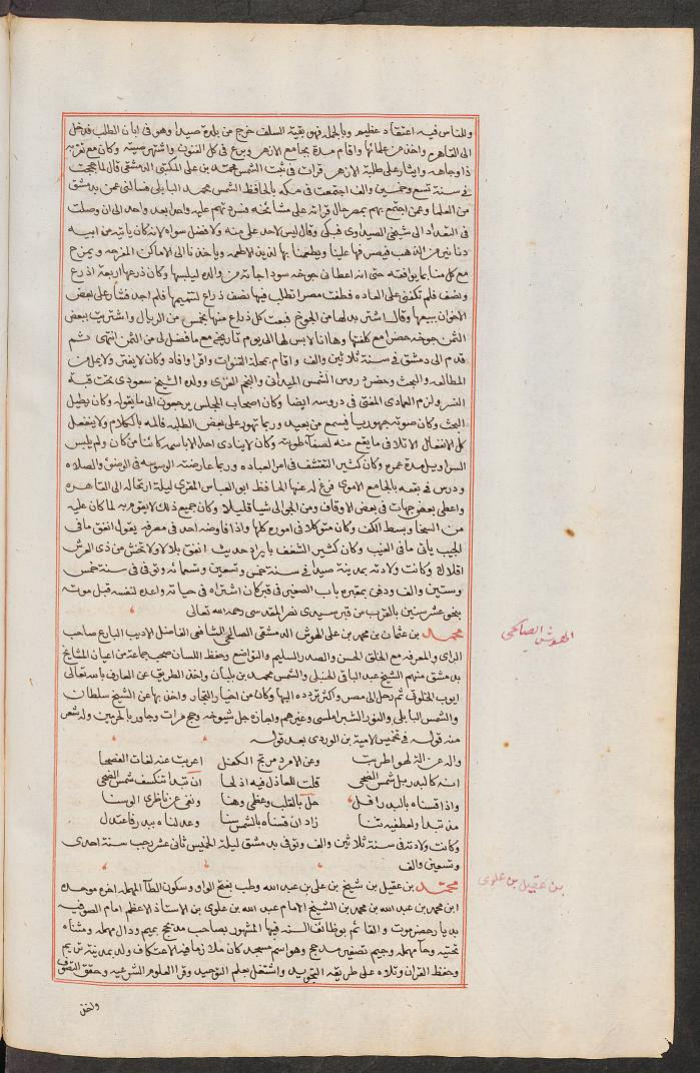 وللناس فيه اعتقاد عظيم وبالجملة فهو بقية السلف خرج من بلدة صيدا وهو في ابان الطلب فدخل
الى القاهرة واخذ عن علمائها واقام مدة بجامع الازهر وبرع في كل الفنون واشتهر صيته وكان مع تغربه
ذا وجاهه وايثار على طلبة الازهر قرات في ثبت الشمس محمد بن علي المكتبي الدمشقي قال لما حججت
في سنة تسع وخمسين والف اجتمعت في مكه بالحافظ الشمس محمد البابلي فسالني عمن بدمشق
من العلما وعمن اجتمع بهم بمصر حال قراته على مشائخه فسردتهم عليه واحدا بعد واحد الى ان وصلت
في التعداد الى شيخي الصيداوي فبكى وقال ليس لاحد علي منه ولا فضل سواه لانه كان ياتيه من ابيه
دنانير من الذهب فيصرفها علينا ويطعمنا بها لذيذ الاطعمه وياخذنا الى الاماكن المفرجه ويمزح
مع كل منا بما يوافقه حتى انه اعطاني جوخه سودا جاته من والده ليلبسها وكان ذرعها اربعة اذرع
ونصف فلم تكفني على العاده فطفت مصرا تطلب فيها نصف ذراع لتتميمها فلم اجد فاشار علي بعض
الاخوان ببيعها وقال اشتر بدلها من الجوخ فبعت كل ذراع منها بخمس من الريال واشتريت ببعض
الثمن جوخه خضرا مع كلفتها وها انا لابس لها الى يوم تاريخه مع ما فضل لي من الثمن انتهى ثم
قدم الى دمشق في سنة ثلاثين والف واقام بمحلة القنوات واقرا وافاد وكان لا يفتر ولا يمل من
المطالعه والبحث وحضر دروس الشمس الميداني والنجم الغزي وولده الشيخ سعودي تحت قبة
النسر ولزم العمادي المفتي في دروسه ايضا وكان اصحاب المجلس يرجعون الى ما يقوله وكان يطيل
البحث وكان صوته جهوريا فيسمع من بعيد وربما تهور على بعض الطلبه فالمه بالكلام ولا ينفعل
كل الانفعال الا نادرا في ما يقع منه لصفاء طويته وكان لا ينادي احدا الا باسمه كائنا من كان ولم يلبس
السراويل مدة عمره وكان كثير التقشف في امر العباده وربما عارضته الوسوسه في الوضوء والصلاه
ودرس في بقعه بالجامع الاموي فرغ له عنها الحافظ ابو العباس المقري ليلة ارتحاله الى القاهره
واعطي بعض جهات في بعض الاوقاف ومن الجوالي شيا قليلا وكان جميع ذلك لا يقوم به لما كان عليه
من السخا وبسط الكف وكان متوكلا في اموره كلها واذا فاوضه احد في مصرفه يقول انفق ما في
الجيب ياتي ما في الغيب وكان كثير الشغف بايراد حديث انفق بلالا ولا تخش من ذي العرش
اقلالا وكانت ولادته بمدينة صيدا في سنة خمس وتسعين وتسعمائه وتوفي في سنة خمس
وستين والف ودفن بمقبره باب الصغير في قبر كان اشتراه في حياته واعده لنفسه قبل موته
بنحو عشر سنين بالقرب من قبر سيدي نصر المقدسي رحمه الله تعالى
محمد بن عثمان بن محمد بن علي الهوش الدمشقي الصالحي الشافعي الفاضل الاديب البارع صاحب
الراي والمعرفه مع الخلق الحسن والصدر السليم والتواضع وحفظ اللسان صحب جماعة من اعيان المشايخ
بدمشق منهم الشيخ عبد الباقي الحنبلي والشمس محمد بن بلبان واخذ الطريق عن العارف بالله تعالى
ايوب الخلوتي ثم رحل الى مصر واكثر تردده اليها وكان من اخيار التجار واخذ بها عن الشيخ سلطان
والشمس البابلي والنور الشبراملسي وغيرهم واجازه جل شيوخه وحج مرات وجاور بالحرمين وله شعر
منه قوله في تخميس لامية بن الوردي بعد قوله
واله عن الة لهو اطربت وعن الامرد مرتج الكفل اعربت عنه لغات الفصحا
انه كالبدر بل شمس الضحى قلت للعاذل فيه اذ لحا ان تبدا تنكسف شمس الضحى
واذا قسناه بالبدر افل حل بالقلب وعظمي وهنا ونفى عن ناظري الوسنا
مذ تبدا ولعطفيه ثنا زاد ان قسناه بالشمس سنا وعدلناه ببدر فاعتدل
وكانت ولادته في سنة ثلاثين والف وتوفي بدمشق ليلة الخميس ثاني عشر رجب سنة احدى
وتسعين والف
محمد بن عقيل بن شيخ بن علي بن عبد الله وطب بفتح الواو وسكون الطآ المهمله اخره موحده
ابن محمد بن عبد الله بن محمد بن الشيخ الامام عبد الله بن علوي بن الاستاذ الاعظم امام الصوفيه
بديار حضرموت والقائم بوظائف السنه فيها المشهور بصاحب مديحج بميم ودال مهمله ومثناه
تحتيه وحآ مهمله وجيم تصغير مدحج وهو اسم مسجد كان ملازما فيه الاعتكاف ولد بمدينة تريم
وحفظ القران وتلاه على طريقه التجويد واشتغل بعلم التوحيد وقرا العلوم الشرعيه وحقق التصوف
واخذ
الهوش الصالحي
بن عقيل بن علوي